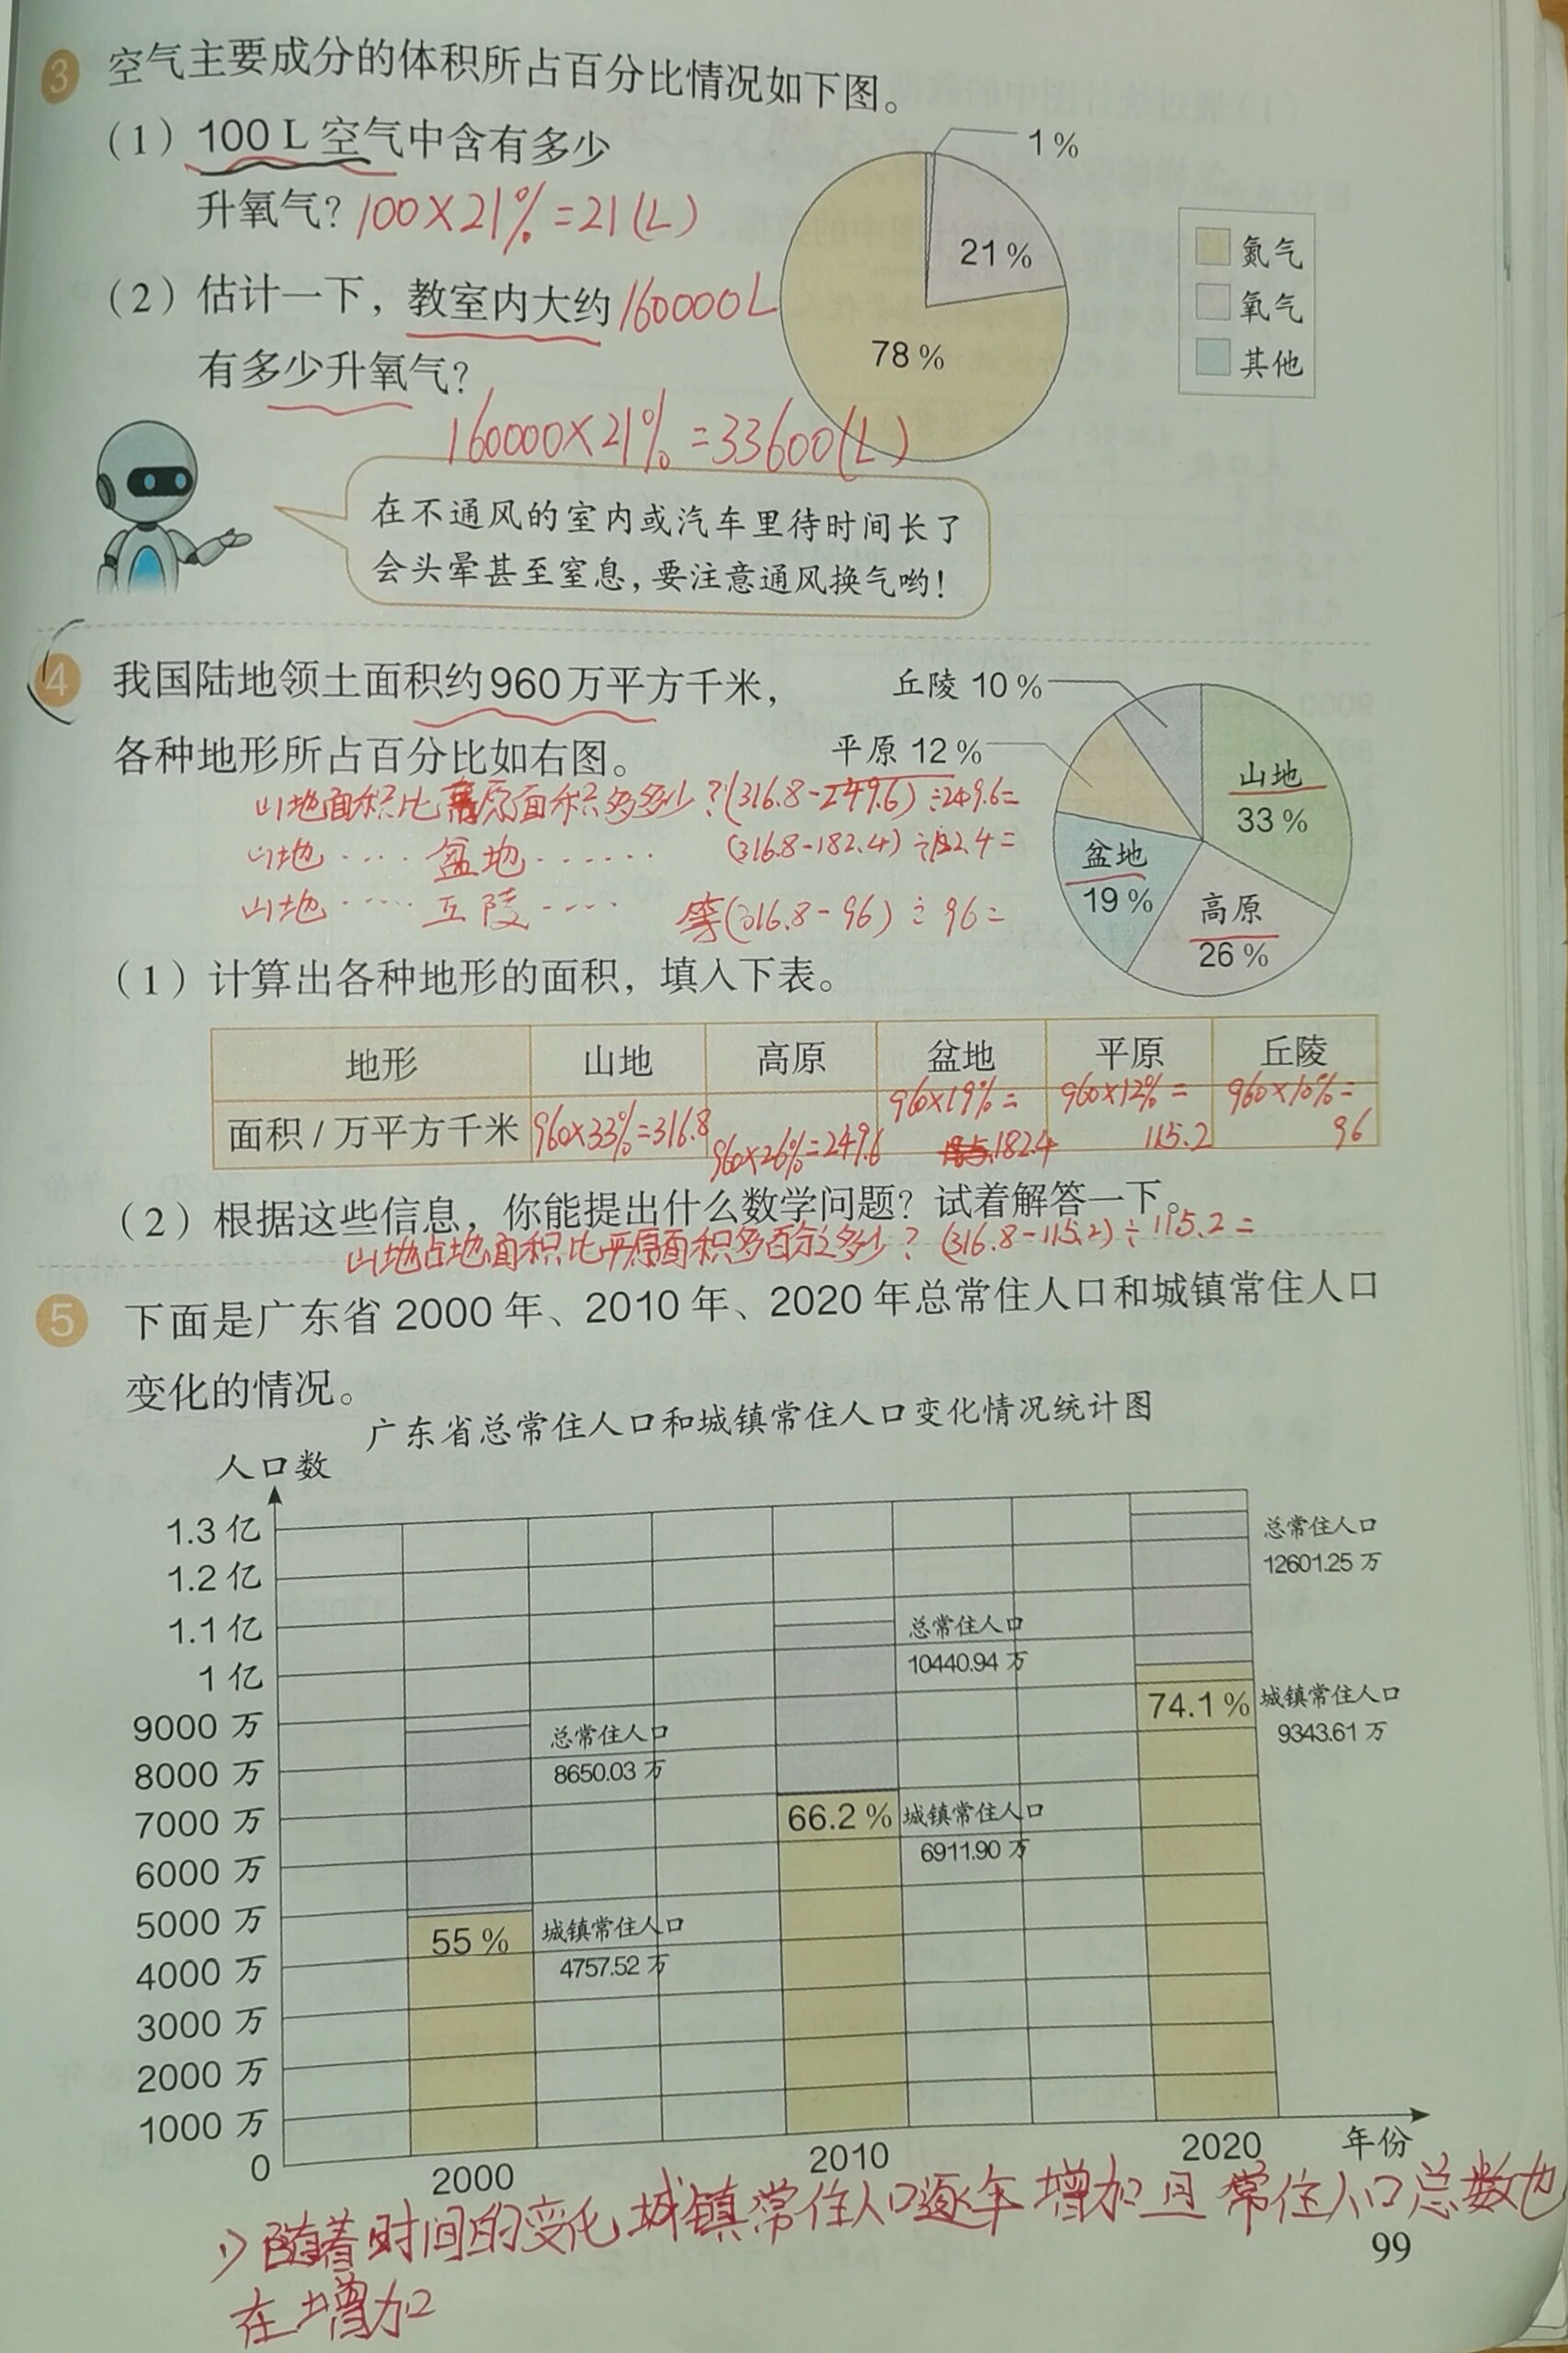 3 空气主要成分的体积所占百分比情况如下图。
(1) 100 L 空气中含有多少
升氧气? 100×21%=21(L)
(2) 估计一下，教室内大约 160000L
有多少升氧气?
160000×21%=33600(L)
1%
21%
78%
氮气
氧气
其他
在不通风的室内或汽车里待时间长了
会头晕甚至窒息，要注意通风换气哟！
4 我国陆地领土面积约960万平方千米，
各种地形所占百分比如右图。
丘陵 10%
平原 12%
山地
33%
盆地
19%
高原
26%
山地面积比高原面积多多少？(316.8-249.6)÷249.6=
山地····盆地······ (316.8-182.4)÷182.4=
山地·····丘陵···· 等(316.8-96)÷96=
(1) 计算出各种地形的面积，填入下表。
地形 山地 高原 盆地 平原 丘陵
面积/万平方千米 960×33%=316.8 960×26%=249.6 960×19%=182.4 960×12%=115.2 960×10%=96
(2) 根据这些信息，你能提出什么数学问题？试着解答一下。
山地占地面积比平原面积多百分之多少？(316.8-115.2)÷115.2=
5 下面是广东省 2000 年、2010 年、2020 年总常住人口和城镇常住人口
变化的情况。
广东省总常住人口和城镇常住人口变化情况统计图
人口数
1.3 亿
1.2 亿
1.1 亿
1 亿
9000 万
8000 万
7000 万
6000 万
5000 万
4000 万
3000 万
2000 万
1000 万
0
总常住人口
8650.03 万
55%
城镇常住人口
4757.52 万
总常住人口
10440.94 万
66.2%
城镇常住人口
6911.90 万
总常住人口
12601.25 万
74.1%
城镇常住人口
9343.61 万
2000 2010 2020 年份
1) 随着时间的变化城镇常住人口逐年增加且常住人口总数也
在增加
99